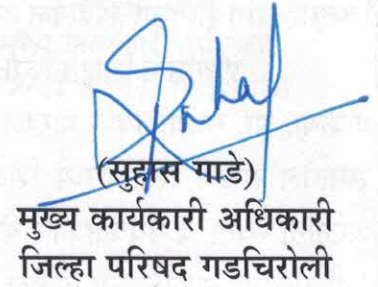 (सुहास गाडे)
मुख्य कार्यकारी अधिकारी
जिल्हा परिषद गडचिरोली